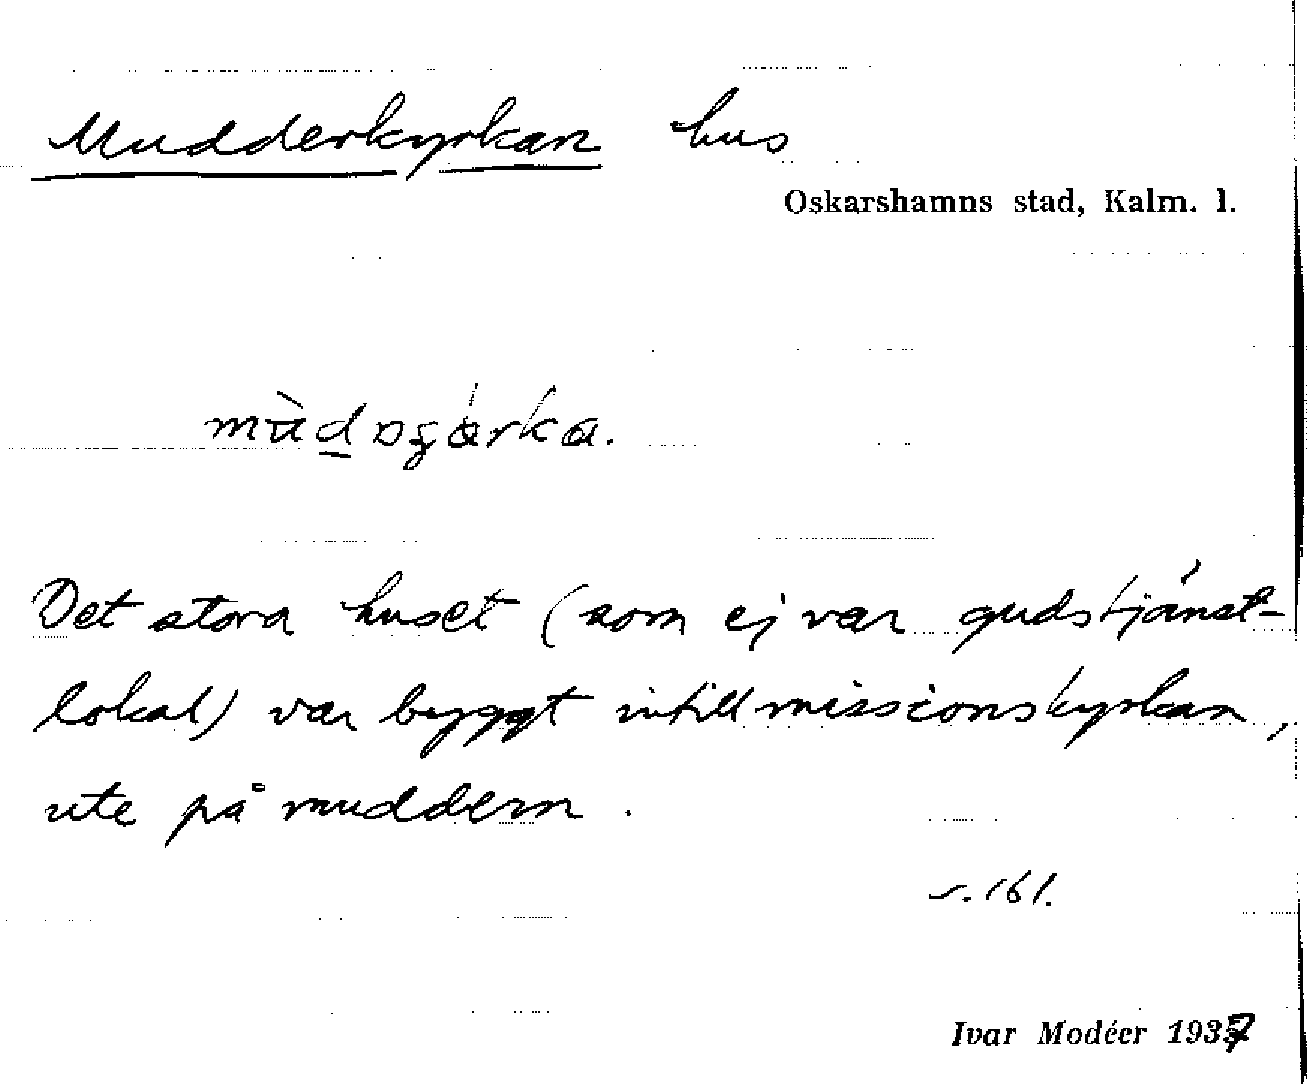 Mudderkyrkan hus
Oskarshamns stad, Kalm. l.
Det stora huset (som ej var gudstjänst-
lokal) var byggt intill missionskyrkan,
ute på muddern.
s. 161.
Ivar Modéer 1937